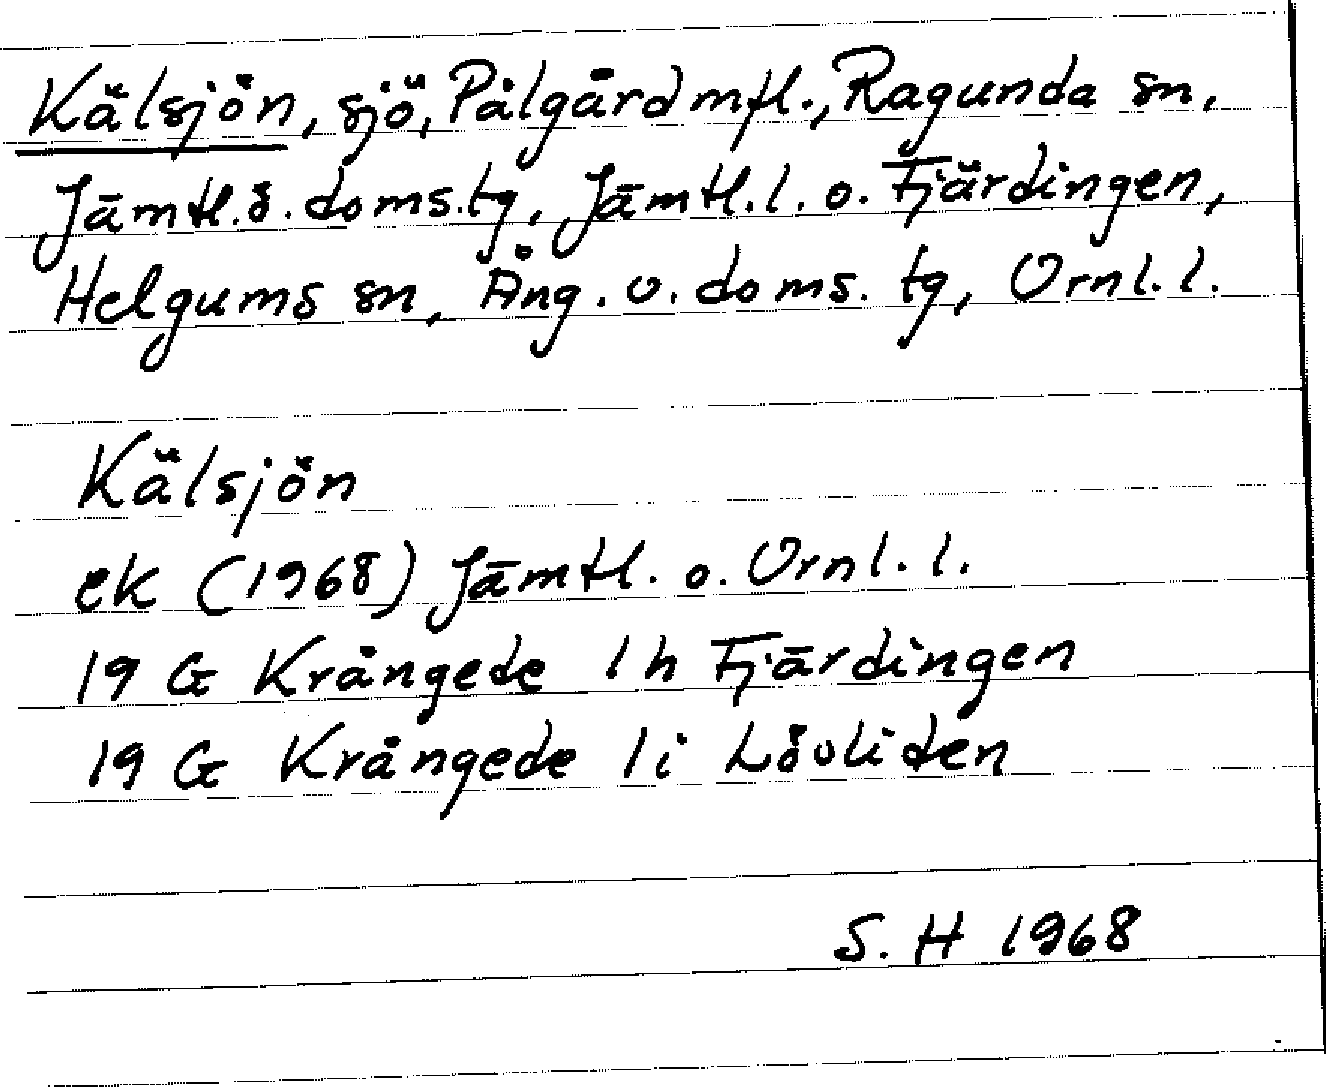 Kälsjön, sjö, Pålgård mfl., Ragunda sn,
Jämtl.ö. doms.tg, Jämtl.l. o. Fjärdingen,
Helgums sn, Ång. v. doms. tg, Vrnl. l.
Kälsjön
ek (1968) Jämtl. o. Vrnl. l.
19 G Krångede 1 h Fjärdingen
19 G Krångede 1 i Lövliden
S. H 1968